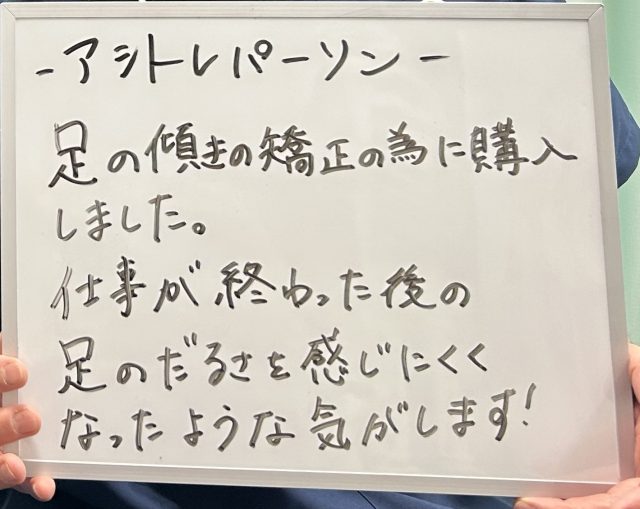 -アシトレパーソン-
足の傾きの矯正の為に購入
しました。
仕事が終わった後の
足のだるさを感じにくく
なったような気がします!